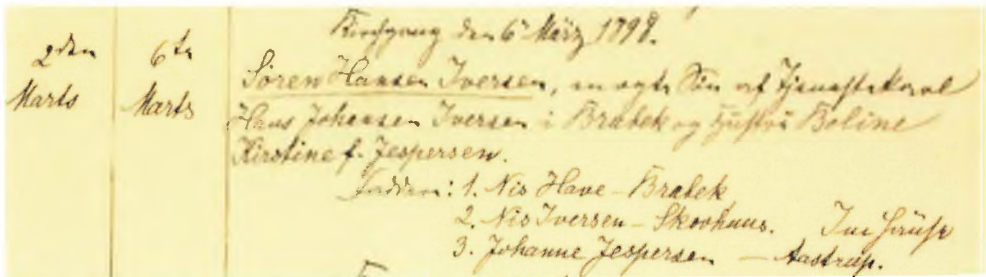 Kirchgang den 6 März 1898.
2den Marts
6te Marts
Søren Hansen Iversen, en ægte Søn af Tjenestekarl
Hans Johansen Iversen i Brabek og Hustru Boline
Kirstine f. Jespersen.
Faddere: 1. Nis Have - Brabek
2. Nis Iversen - Skovhuus. Im Hause
3. Johanne Jespersen - Aastrup.